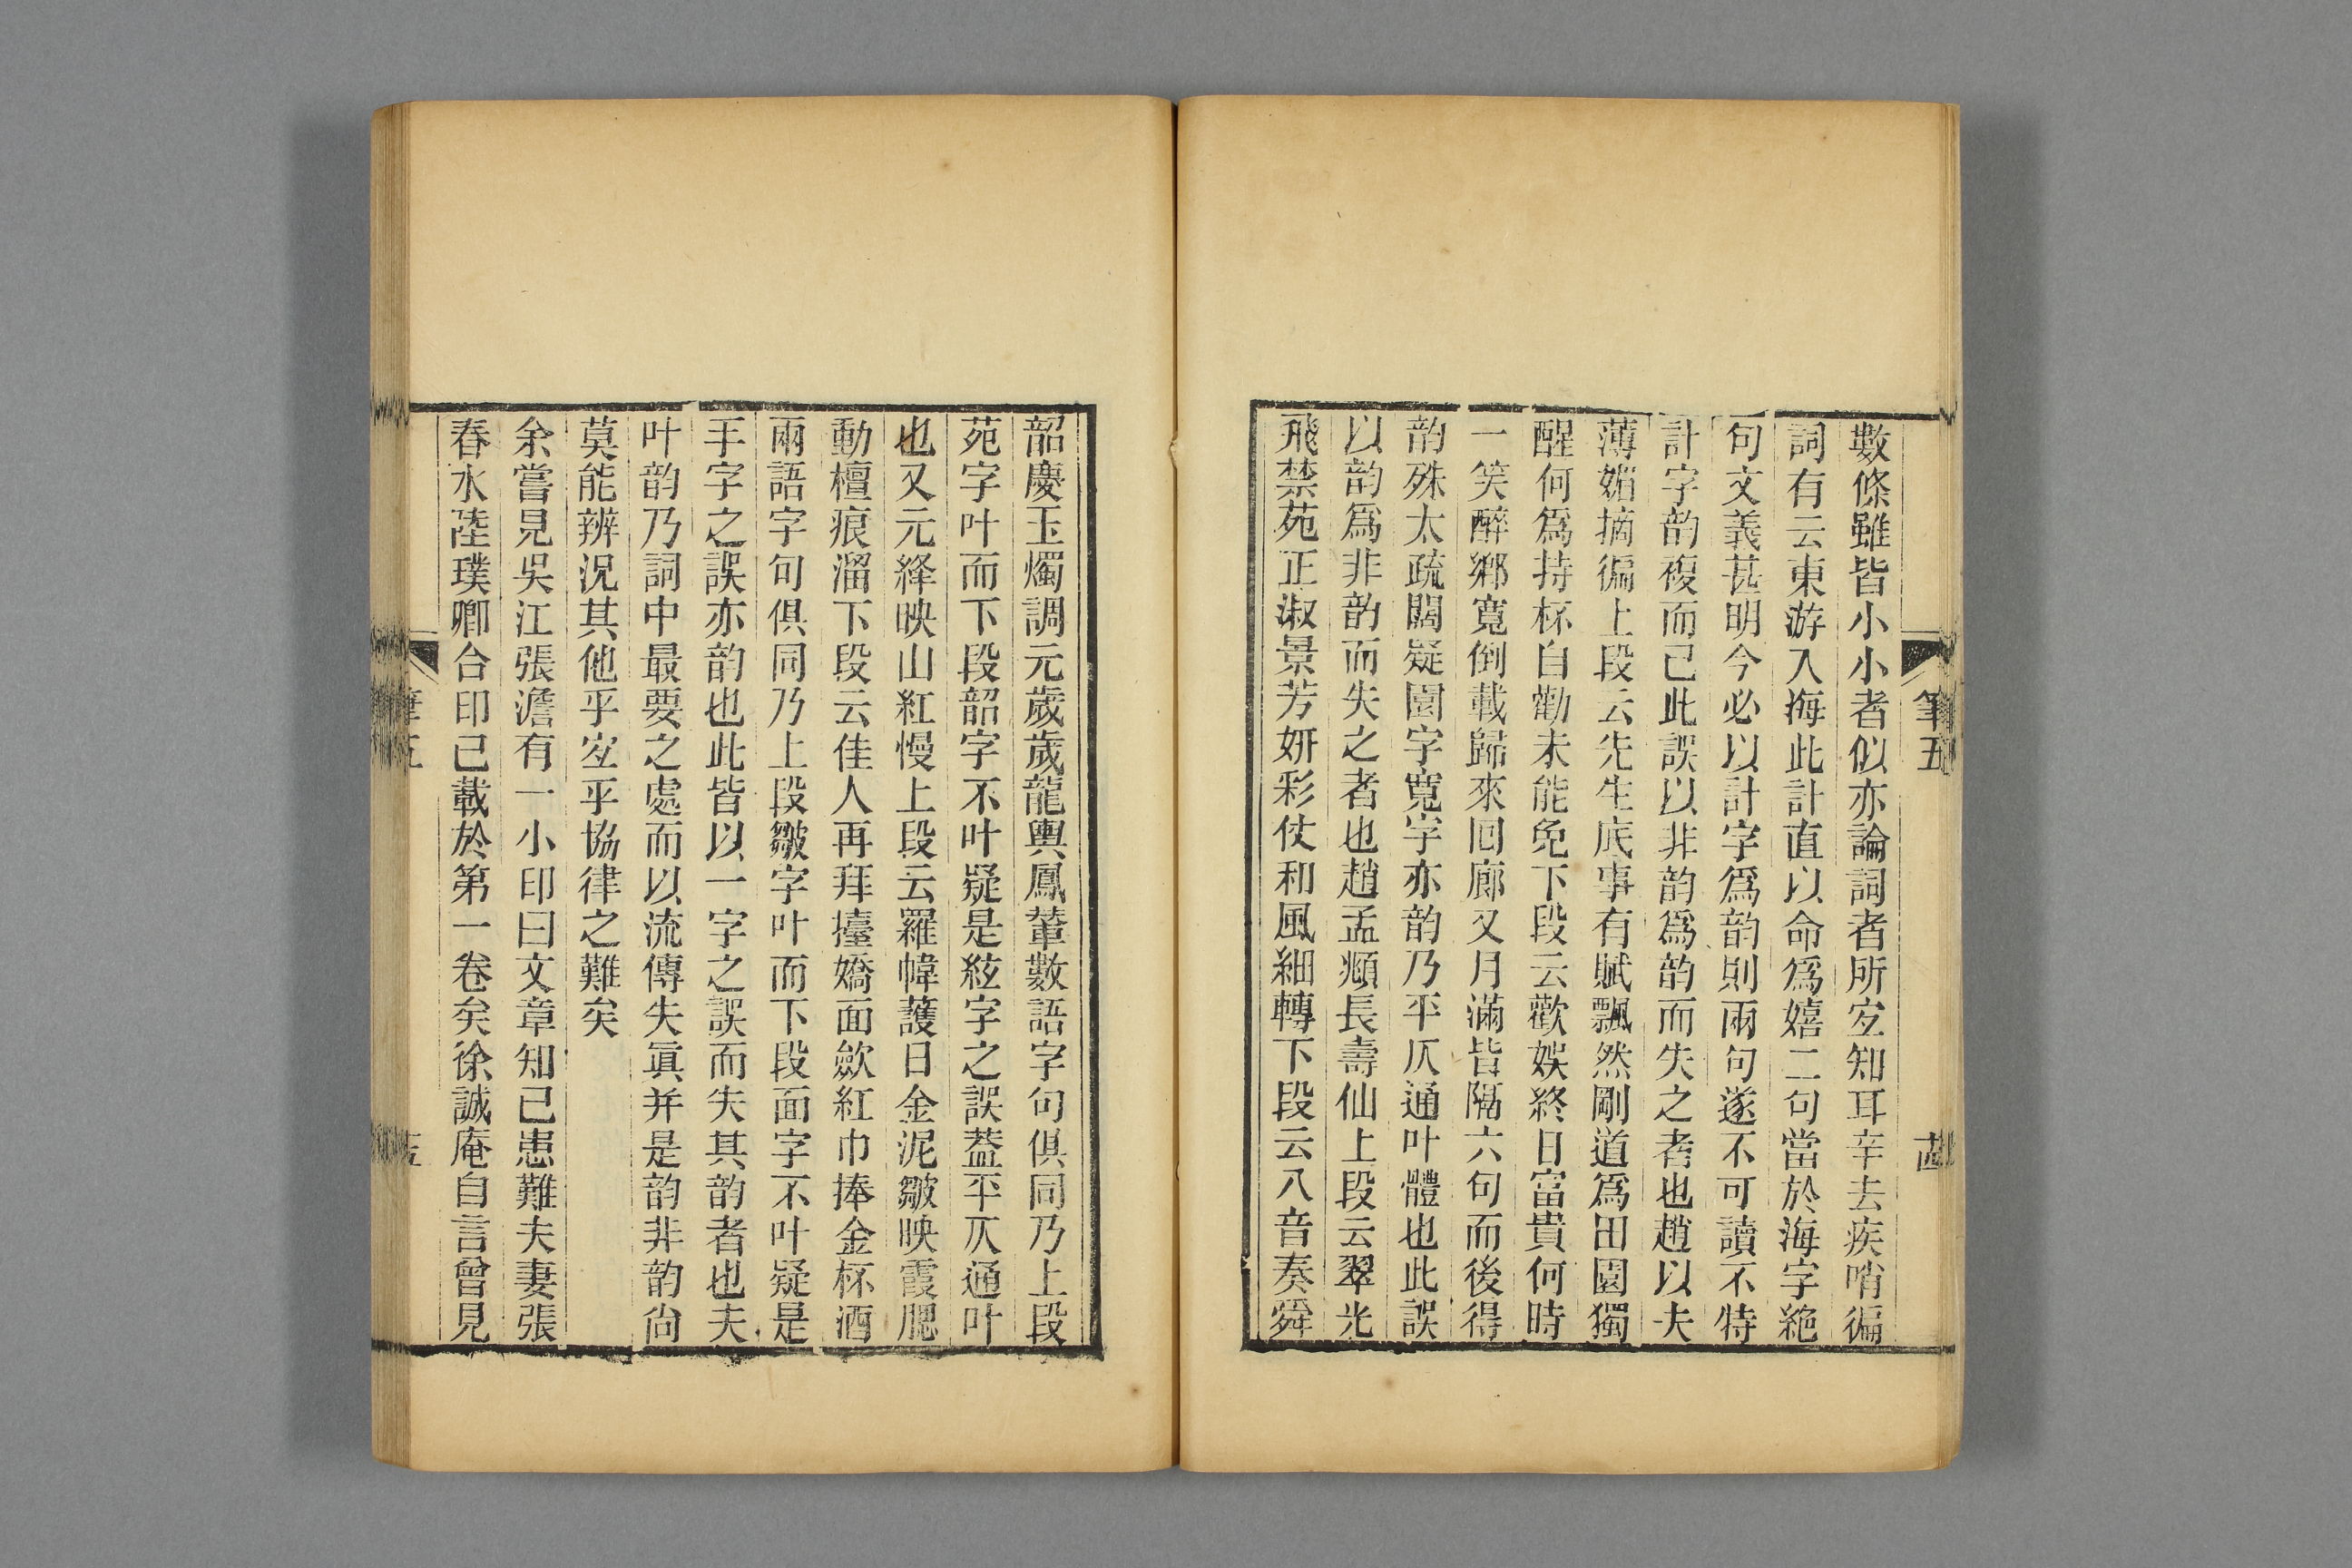 筆五
數條雖皆小小者似亦論詞者所宐知耳辛去疾哨徧
詞有云東游入海此計直以命爲嬉二句當於海字絶
句文義甚明今必以計字爲韵則兩句遂不可讀不特
計字韵複而已此誤以非韵爲韵而失之者也趙以夫
薄媚摘徧上段云先生底事有賦飄然剛道爲田園獨
醒何爲持杯自勸未能免下段云歡娛終日富貴何時
一笑醉鄉寬倒載歸來囘廊又月滿皆隔六句而後得
韵殊太疏闊疑園字寬字亦韵乃平仄通叶體也此誤
以韵爲非韵而失之者也趙孟頫長壽仙上段云翠光
飛禁苑正淑景芳妍彩仗和風細轉下段云八音奏舜
韶慶玉燭調元歲歲龍輿鳳輦數語字句俱同乃上段
苑字叶而下段韶字不叶疑是絃字之誤葢平仄通叶
也又元絳映山紅慢上段云羅幃護日金泥皺映霞腮
動檀痕溜下段云佳人再拜擡嬌面歛紅巾捧金杯酒
兩語字句俱同乃上段皺字叶而下段面字不叶疑是
手字之誤亦韵也此皆以一字之誤而失其韵者也夫
叶韵乃詞中最要之處而以流傳失眞并是韵非韵尙
莫能辨况其他乎宐乎協律之難矣
余嘗見吳江張澹有一小印曰文章知己患難夫妻張
春水陸璞卿合印已載於第一卷矣徐誠庵自言曾見